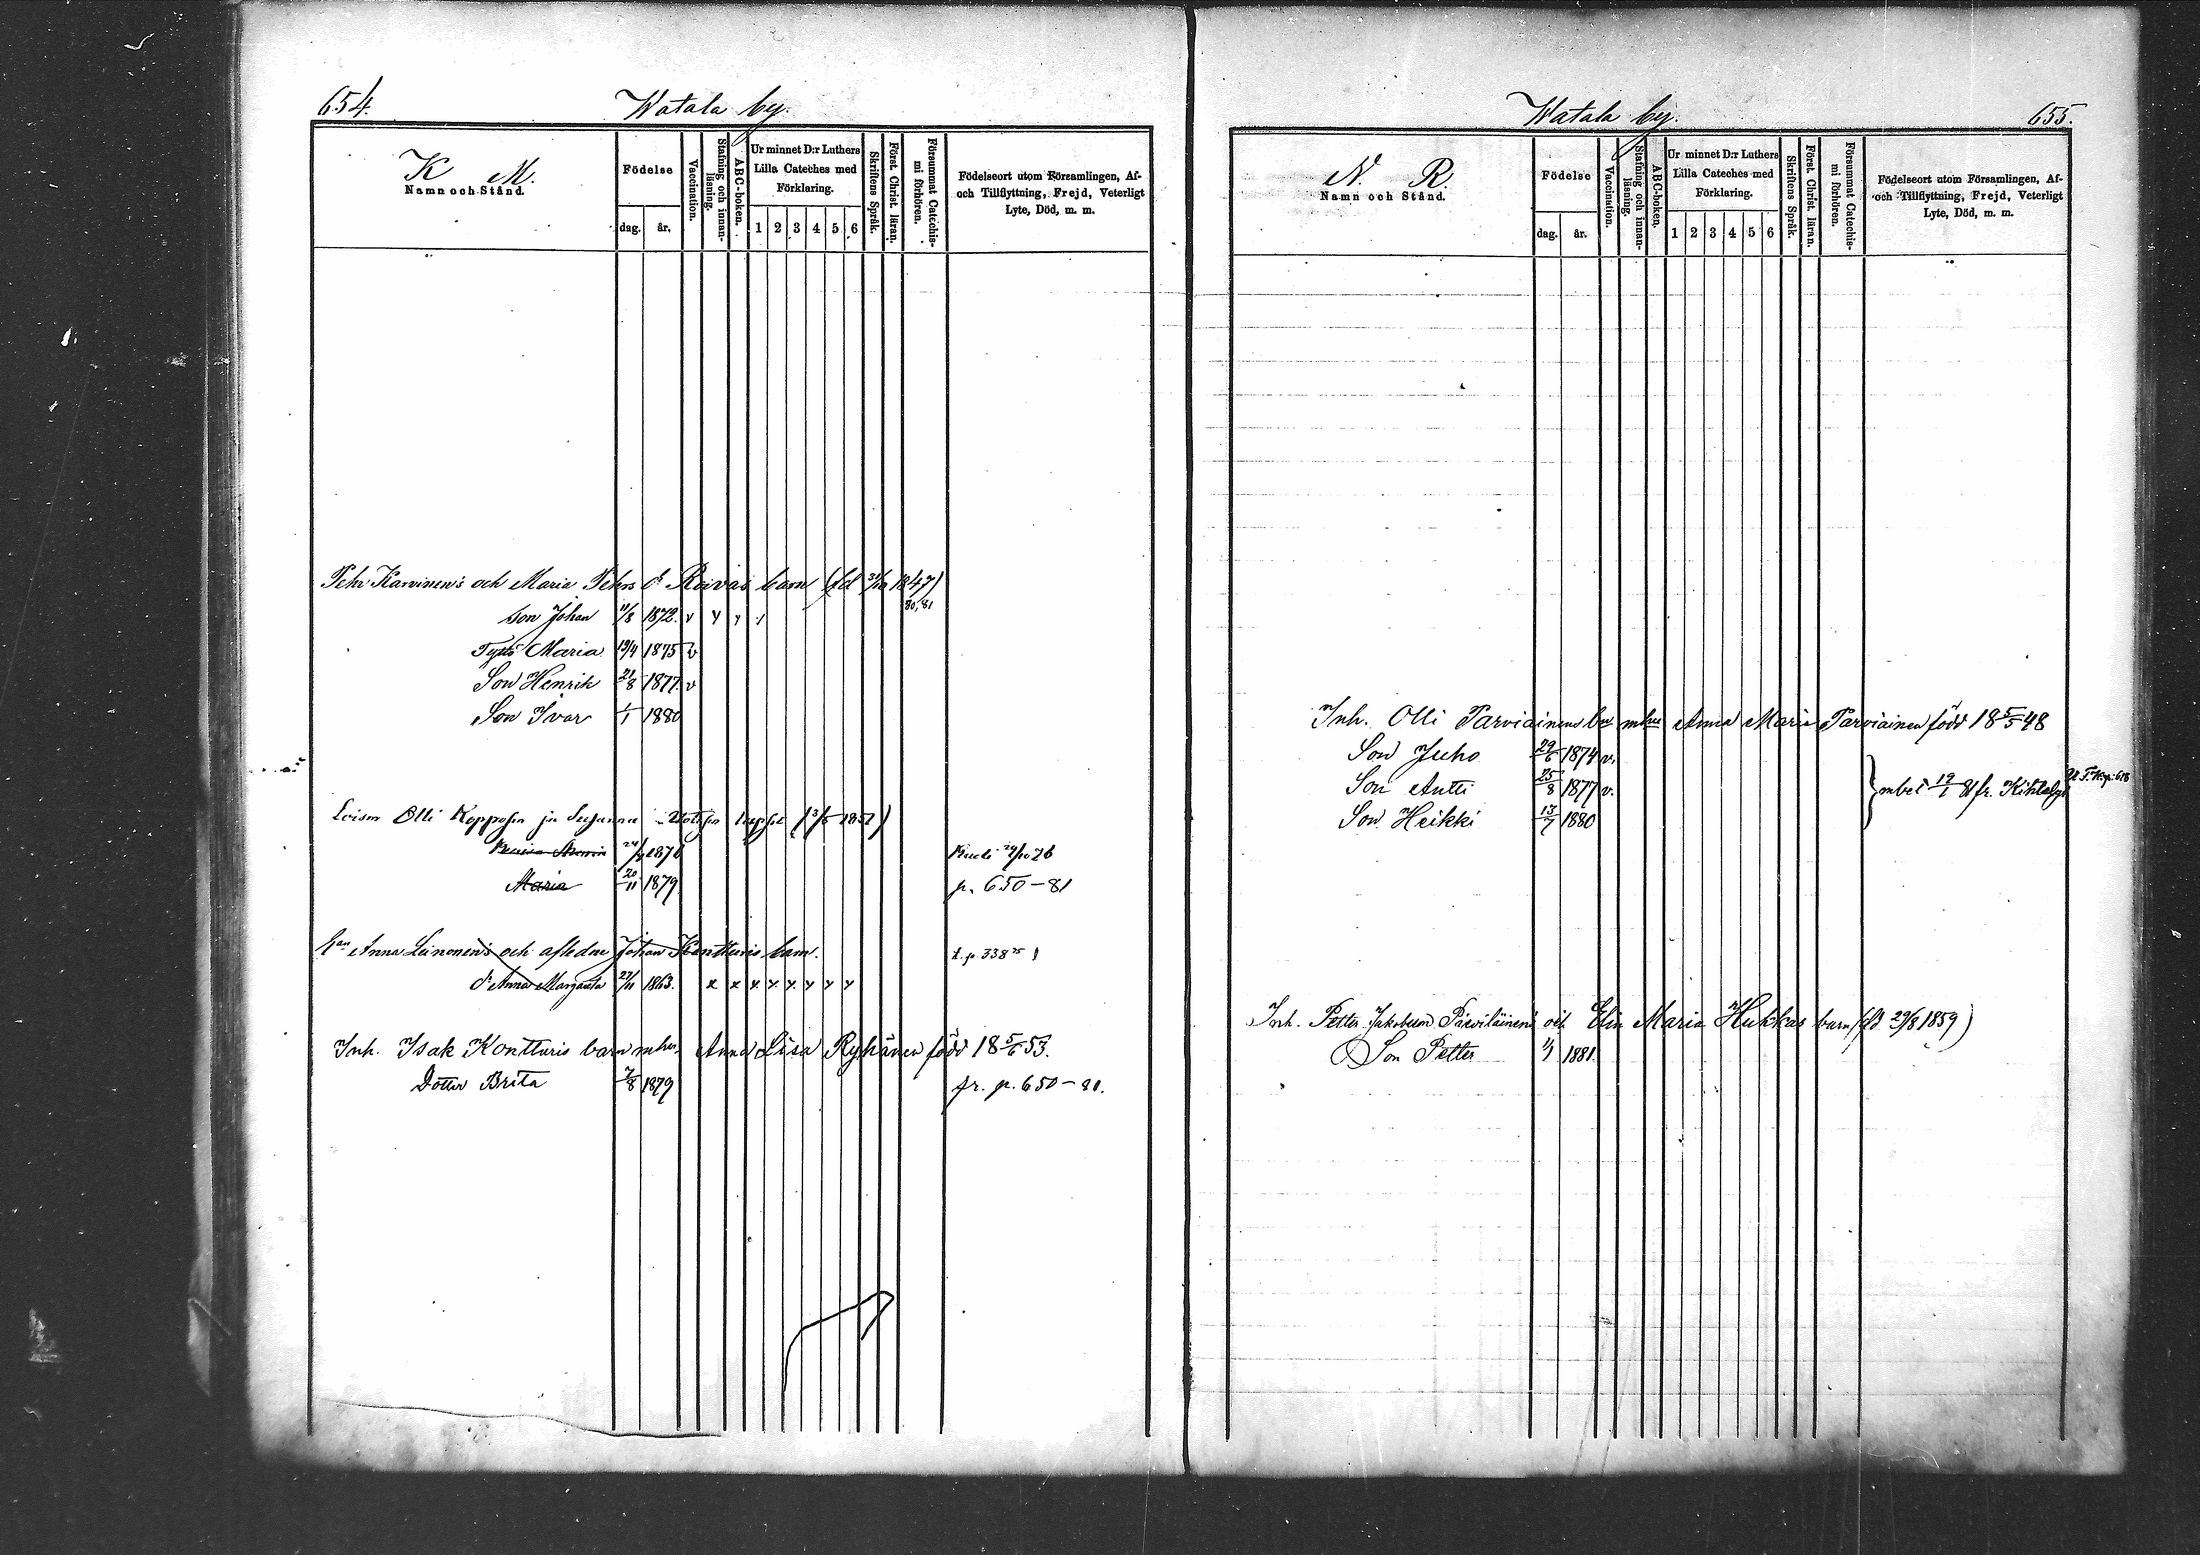 654.
Watala by.
K M.
Namn och Stånd.
Födelse
dag. år.
Vaccination.
Stafning och innanläsning.
ABC-boken.
Ur minnet D:r Luthers
Lilla Cateches med
Förklaring.
1 2 3 4 5 6
Skriftens Språk.
Först. Christ. läran.
Försummat Catechismi förhören.
Födelseort utom Församlingen, Af-
och Tillflyttning, Frejd, Veterligt
Lyte, Död, m. m.
Pehr Karvinen's och Maria Pehrs dr Roivas barn (fd 31/10 1847)
80, 81
son Johan 11/8 1872. v y y y
Maria 19/4 1875 v
Son Henrik 21/8 1877. v
Son Ivar 1/1 1880
Loisen Olli Kopposen ja Susanna lapset
24/9 1876 29/10 76
Maria 20/11 1879 p. 650-81
Anna Leinonen's och afledne Johan Kontturis barn. t. p. 338
dr Anna Margareta 27/11 1863. x x x x x x x x
Inh. Isak Kontturis barn m hu. Anna Lisa Ryhänen född 18 5/6 53.
Dotter Brita 7/8 1879 fr. p. 650-81.
Watala by.
655.
N. R.
Namn och Stånd.
Födelse
dag. år.
Vaccination.
Stafning och innanläsning.
ABC-boken.
Ur minnet D:r Luthers
Lilla Cateches med
Förklaring.
1 2 3 4 5 6
Skriftens Språk.
Först. Christ. läran.
Försummat Catechismi förhören.
Födelseort utom Församlingen, Af-
och Tillflyttning, Frejd, Veterligt
Lyte, Död, m. m.
Inh. Olli Parviainens bn m hu Anna Maria Parviainen född 18 5/5 48
Son Juho 29/6 1874 v.
Son Antti 25/8 1877 v. mbet 19/1 81 fr. 618
Son Heikki 13/7 1880
Inh. Petter Jakobsson Päiviläinens och Elin Maria Hukkas barn (fd 29/8 1859)
Son Petter 1/1 1881.